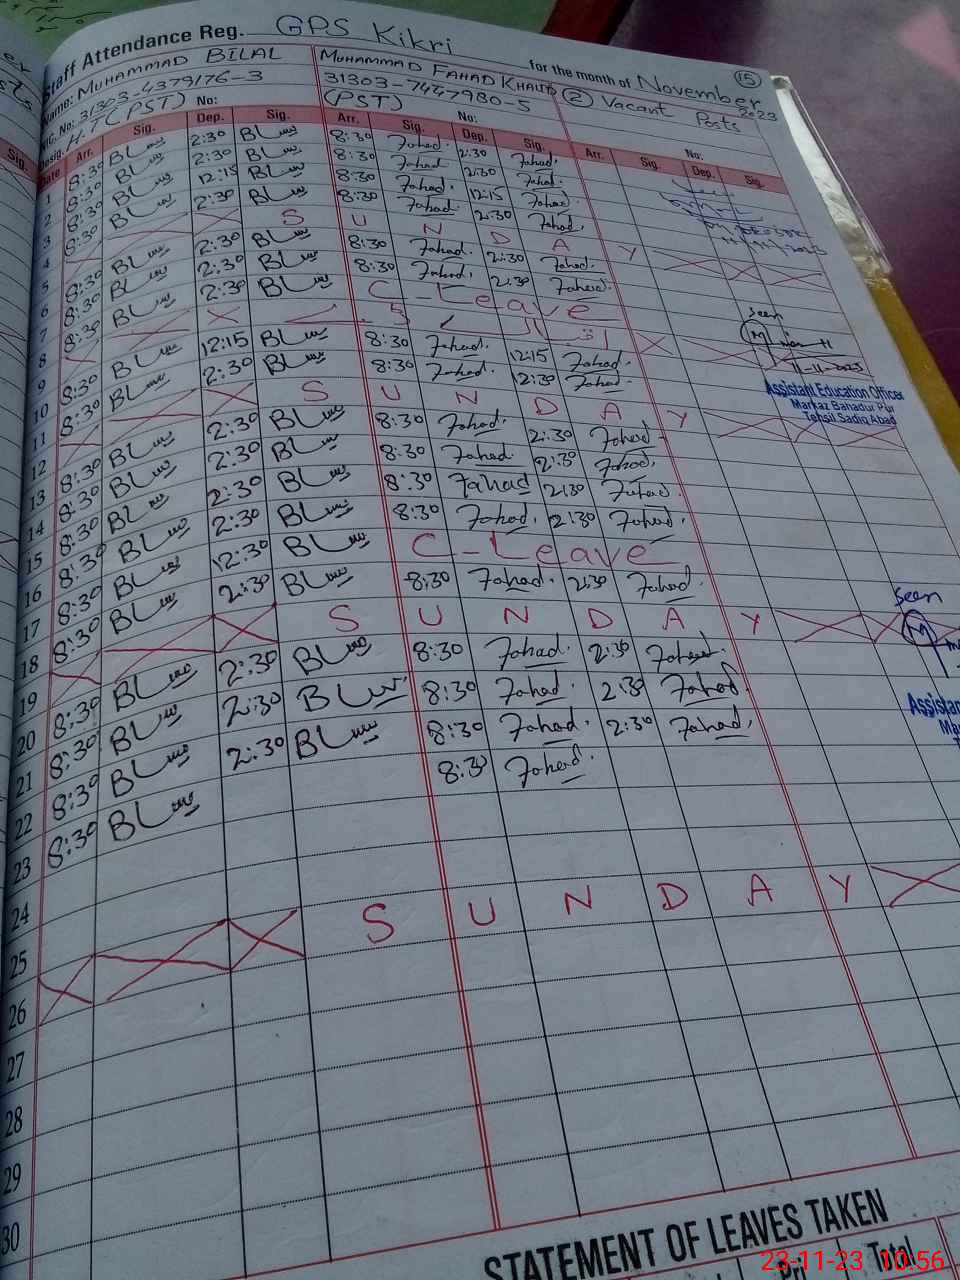 Staff Attendance Reg. GPS Kikri for the month of November 2023 (15)
Name: MUHAMMAD BILAL MUHAMMAD FAHAD KHALID (2) Vacant Posts
No: 31303-4379176-3 31303-7447980-5
Desig. H.T (PST) No: (PST) No: No:
Date Arr. Sig. Dep. Sig. Arr. Sig. Dep. Sig. Arr. Sig. Dep. Sig.
1 8:30 BL 2:30 BL 8:30 Fahad. 2:30 Fahad.
2 8:30 BL 2:30 BL 8:30 Fahad 2:30 Fahad.
3 8:30 BL 12:15 BL 8:30 Fahad. 12:15 Fahad.
4 8:30 BL 2:30 BL 8:30 Fahad. 2:30 Fahad
5 S U N D A Y
6 8:30 BL 2:30 BL 8:30 Fahad. 2:30 Fahad.
7 8:30 BL 2:30 BL 8:30 Fahad. 2:30 Fahad.
8 8:30 BL 2:30 BL C-Leave
9 اقبال ڈے
10 8:30 BL 12:15 BL 8:30 Fahad. 12:15 Fahad.
11 8:30 BL 2:30 BL 8:30 Fahad. 12:30 Fahad.
12 S U N D A Y
13 8:30 BL 2:30 BL 8:30 Fahad. 2:30 Fahad
14 8:30 BL 2:30 BL 8:30 Fahad. 2:30 Fahad.
15 8:30 BL 2:30 BL 8:30 Fahad 2:30 Fahad.
16 8:30 BL 2:30 BL 8:30 Fahad. 2:30 Fahad.
17 8:30 BL 12:30 BL C-Leave
18 8:30 BL 2:30 BL 8:30 Fahad. 2:30 Fahad.
19 S U N D A Y
20 8:30 BL 2:30 BL 8:30 Fahad. 2:30 Fahad.
21 8:30 BL 2:30 BL 8:30 Fahad. 2:30 Fahad.
22 8:30 BL 2:30 BL 8:30 Fahad. 2:30 Fahad.
23 8:30 BL 8:30 Fahad.
24
25
26 S U N D A Y
27
28
29
30
Seen
M
11-11-2023
Assistant Education Officer
Markaz Bahadur Pur
Tehsil Sadiq Abad
Seen
M
STATEMENT OF LEAVES TAKEN
Total
23-11-23 10:56